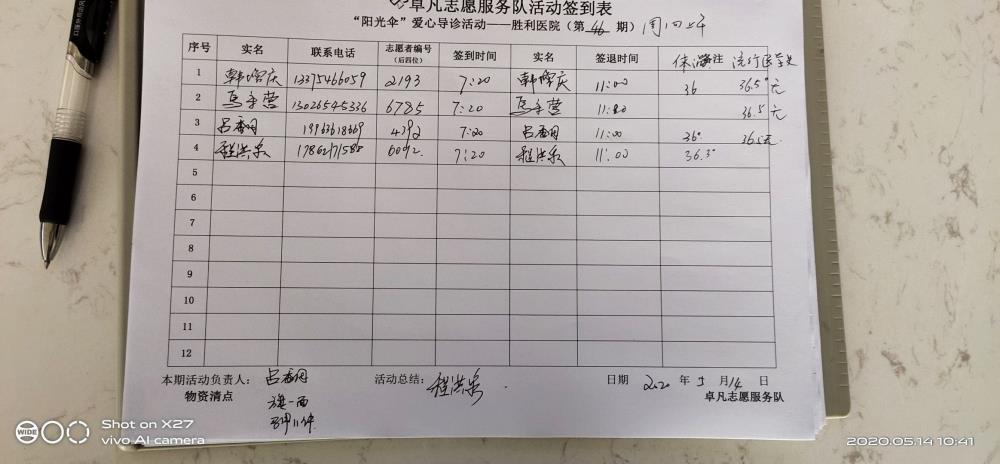 卓凡志愿服务队活动签到表
“阳光伞”爱心导诊活动——胜利医院（第46期）周四上午
序号 实名 联系电话 志愿者编号（后四位） 签到时间 实名 签退时间 备注 流行医学史
1 韩 庆 13375466059 2193 7:20 韩 庆 11:00 36 36.5° 无
2 13026545336 6785 7:20 11:00 36.5 无
3 吕香 7:20 吕香 11:00 36° 36.5 无
4 程洪 6092 7:20 程洪 11:00 36.3°
5
6
7
8
9
10
11
12
本期活动负责人： 吕香 活动总结： 程洪 日期 2020 年 5 月 14 日
物资清点 旗一面 卓凡志愿服务队
Shot on X27
vivo AI camera
WIDE
2020.05.14 10:41